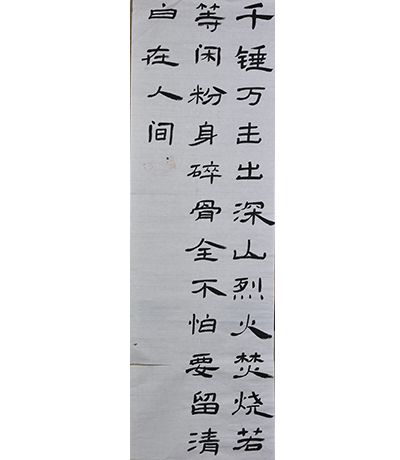 千锤万击出深山烈火焚烧若
等闲粉身碎骨全不怕要留清
白在人间